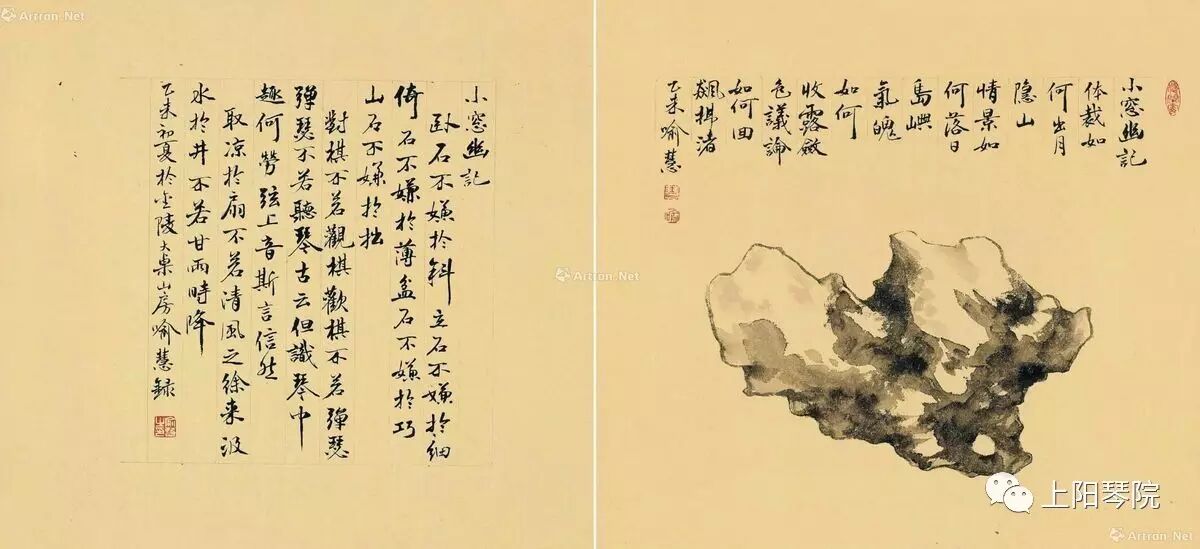 小窓幽記
体裁如
何出月
隐山
情景如
何落日
島嶼
氣魄
如何
收露斂
色議論
如何回
飆拂渚
乙未喻慧
小窓幽記
卧石不嫌於斜立石不嫌於細
倚石不嫌於薄盆石不嫌於巧
山石不嫌於拙
對棋不若觀棋觀棋不若彈瑟
彈瑟不若聽琴古云但識琴中
趣何勞弦上音斯言信然
取凉於扇不若清風之徐来汲
水於井不若甘雨時降
乙未初夏於金陵大桌山房喻慧録
上阳琴院
Artron.Net
Artron.Net
Artron.Net
Artron.Net